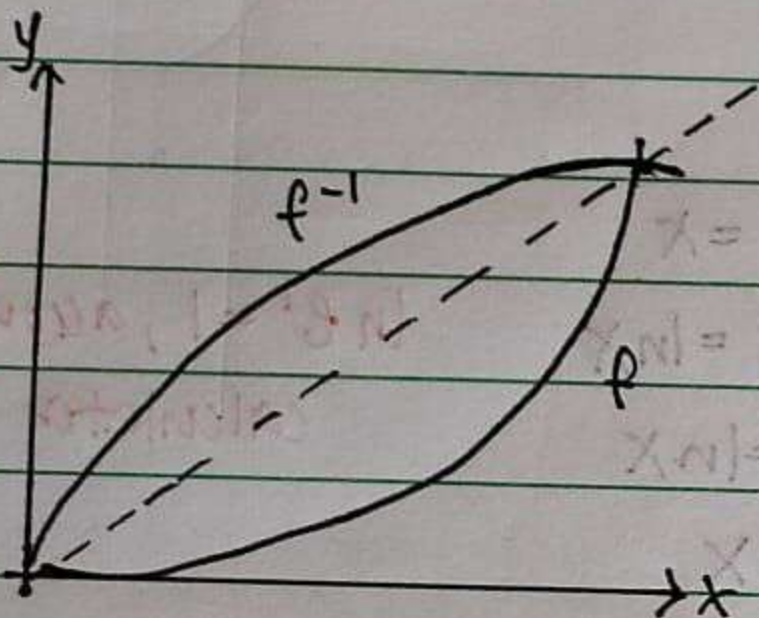 y
f⁻¹
f
x